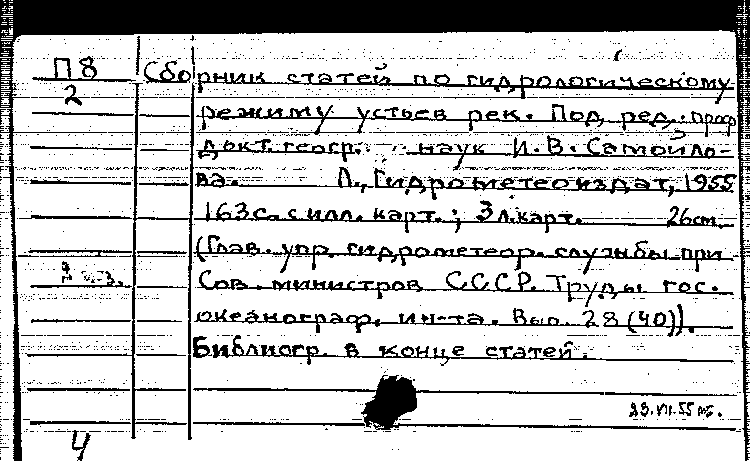 П 8
2
Сборник статей по гидрологическому
режиму устьев рек. Под. ред. проф
докт. геогр. наук И.В. Самойло-
ва. Л., Гидрометеоиздат, 1955
163с. с илл. карт.; 3 л. карт. 26см.
(Глав. упр. гидрометеор. службы при
Сов. министров СССР. Труды гос.
океанограф. ин-та. Вып. 28 (40)).
Библиогр. в конце статей.
4